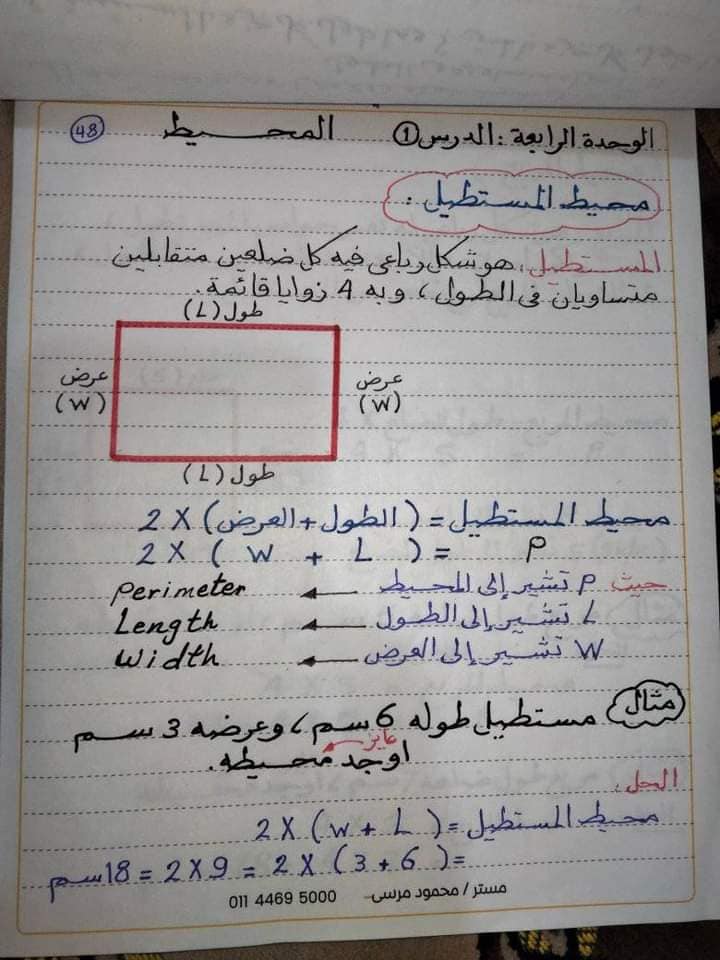 الوحدة الرابعة : الدرس 1 المحيط 48
محيط المستطيل :
المستطيل : هو شكل رباعى فيه كل ضلعين متقابلين
متساويان فى الطول ، وبه 4 زوايا قائمة .
طول (L)
عرض (W) عرض (W)
طول (L)
محيط المستطيل = (الطول + العرض) × 2
P = ( L + W ) × 2
حيث P تشير إلى المحيط ← Perimeter
L تشير إلى الطول ← Length
W تشير إلى العرض ← Width
مثال مستطيل طوله 6 سم ، وعرضه 3 سم
عايز
اوجد محيطه .
الحل :
محيط المستطيل = ( L + W ) × 2
= ( 6 + 3 ) × 2 = 9 × 2 = 18 سم
مستر / محمود مرسى 011 4469 5000